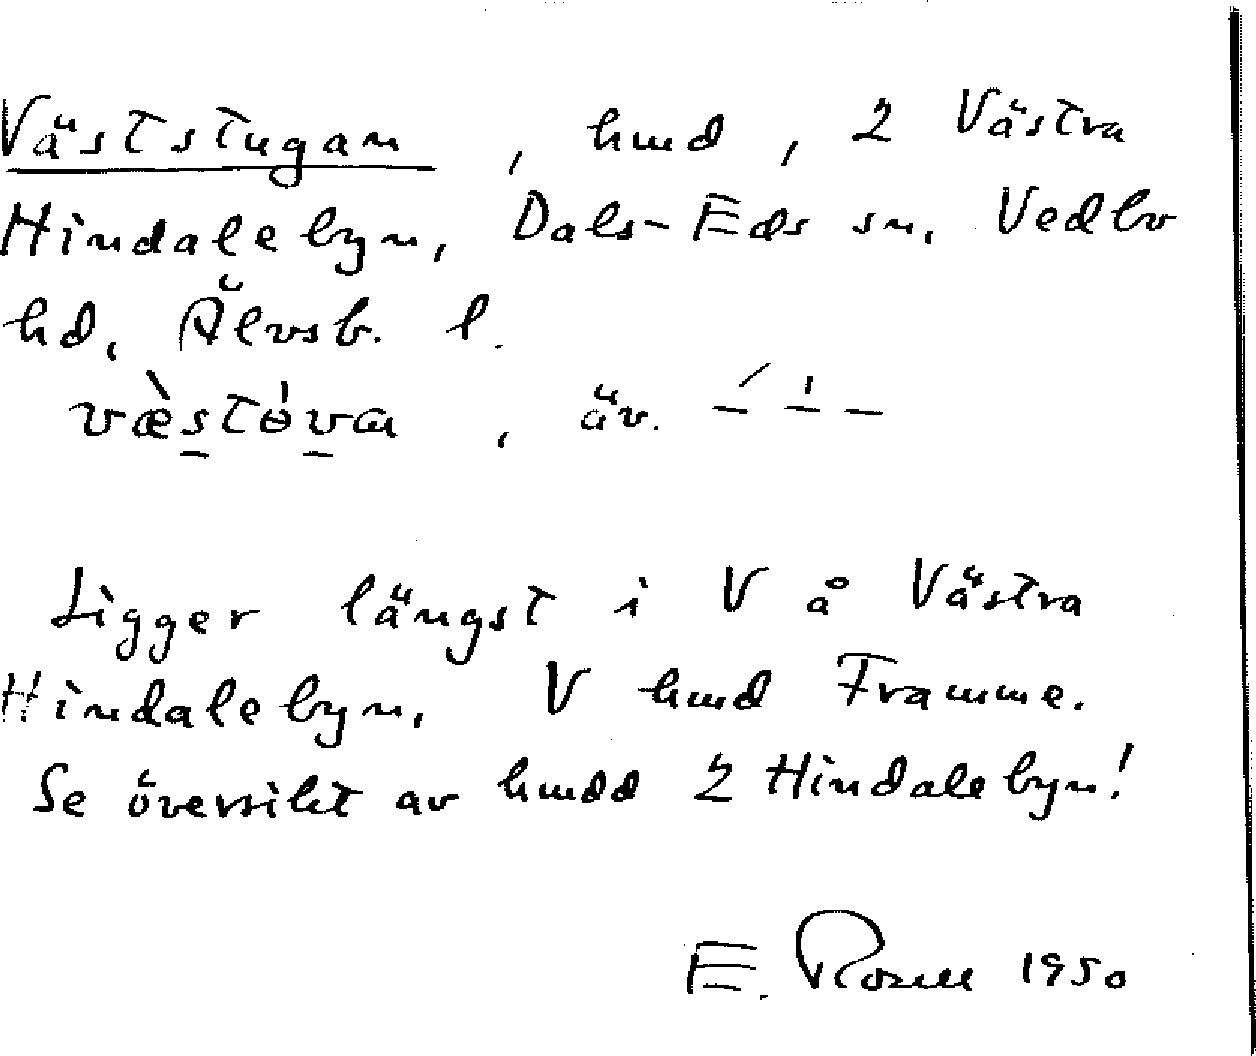 Väststugan, hmd, 2 Västra
Hindalebyn, Dals-Eds sn, Vedbo
hd, Älvsb. l.
væ̀stóva, äv. – – –
Ligger längst i V å Västra
Hindalebyn, V hmd Framme.
Se översikt av hmdd 2 Hindalebyn!
E. Rosell 1950